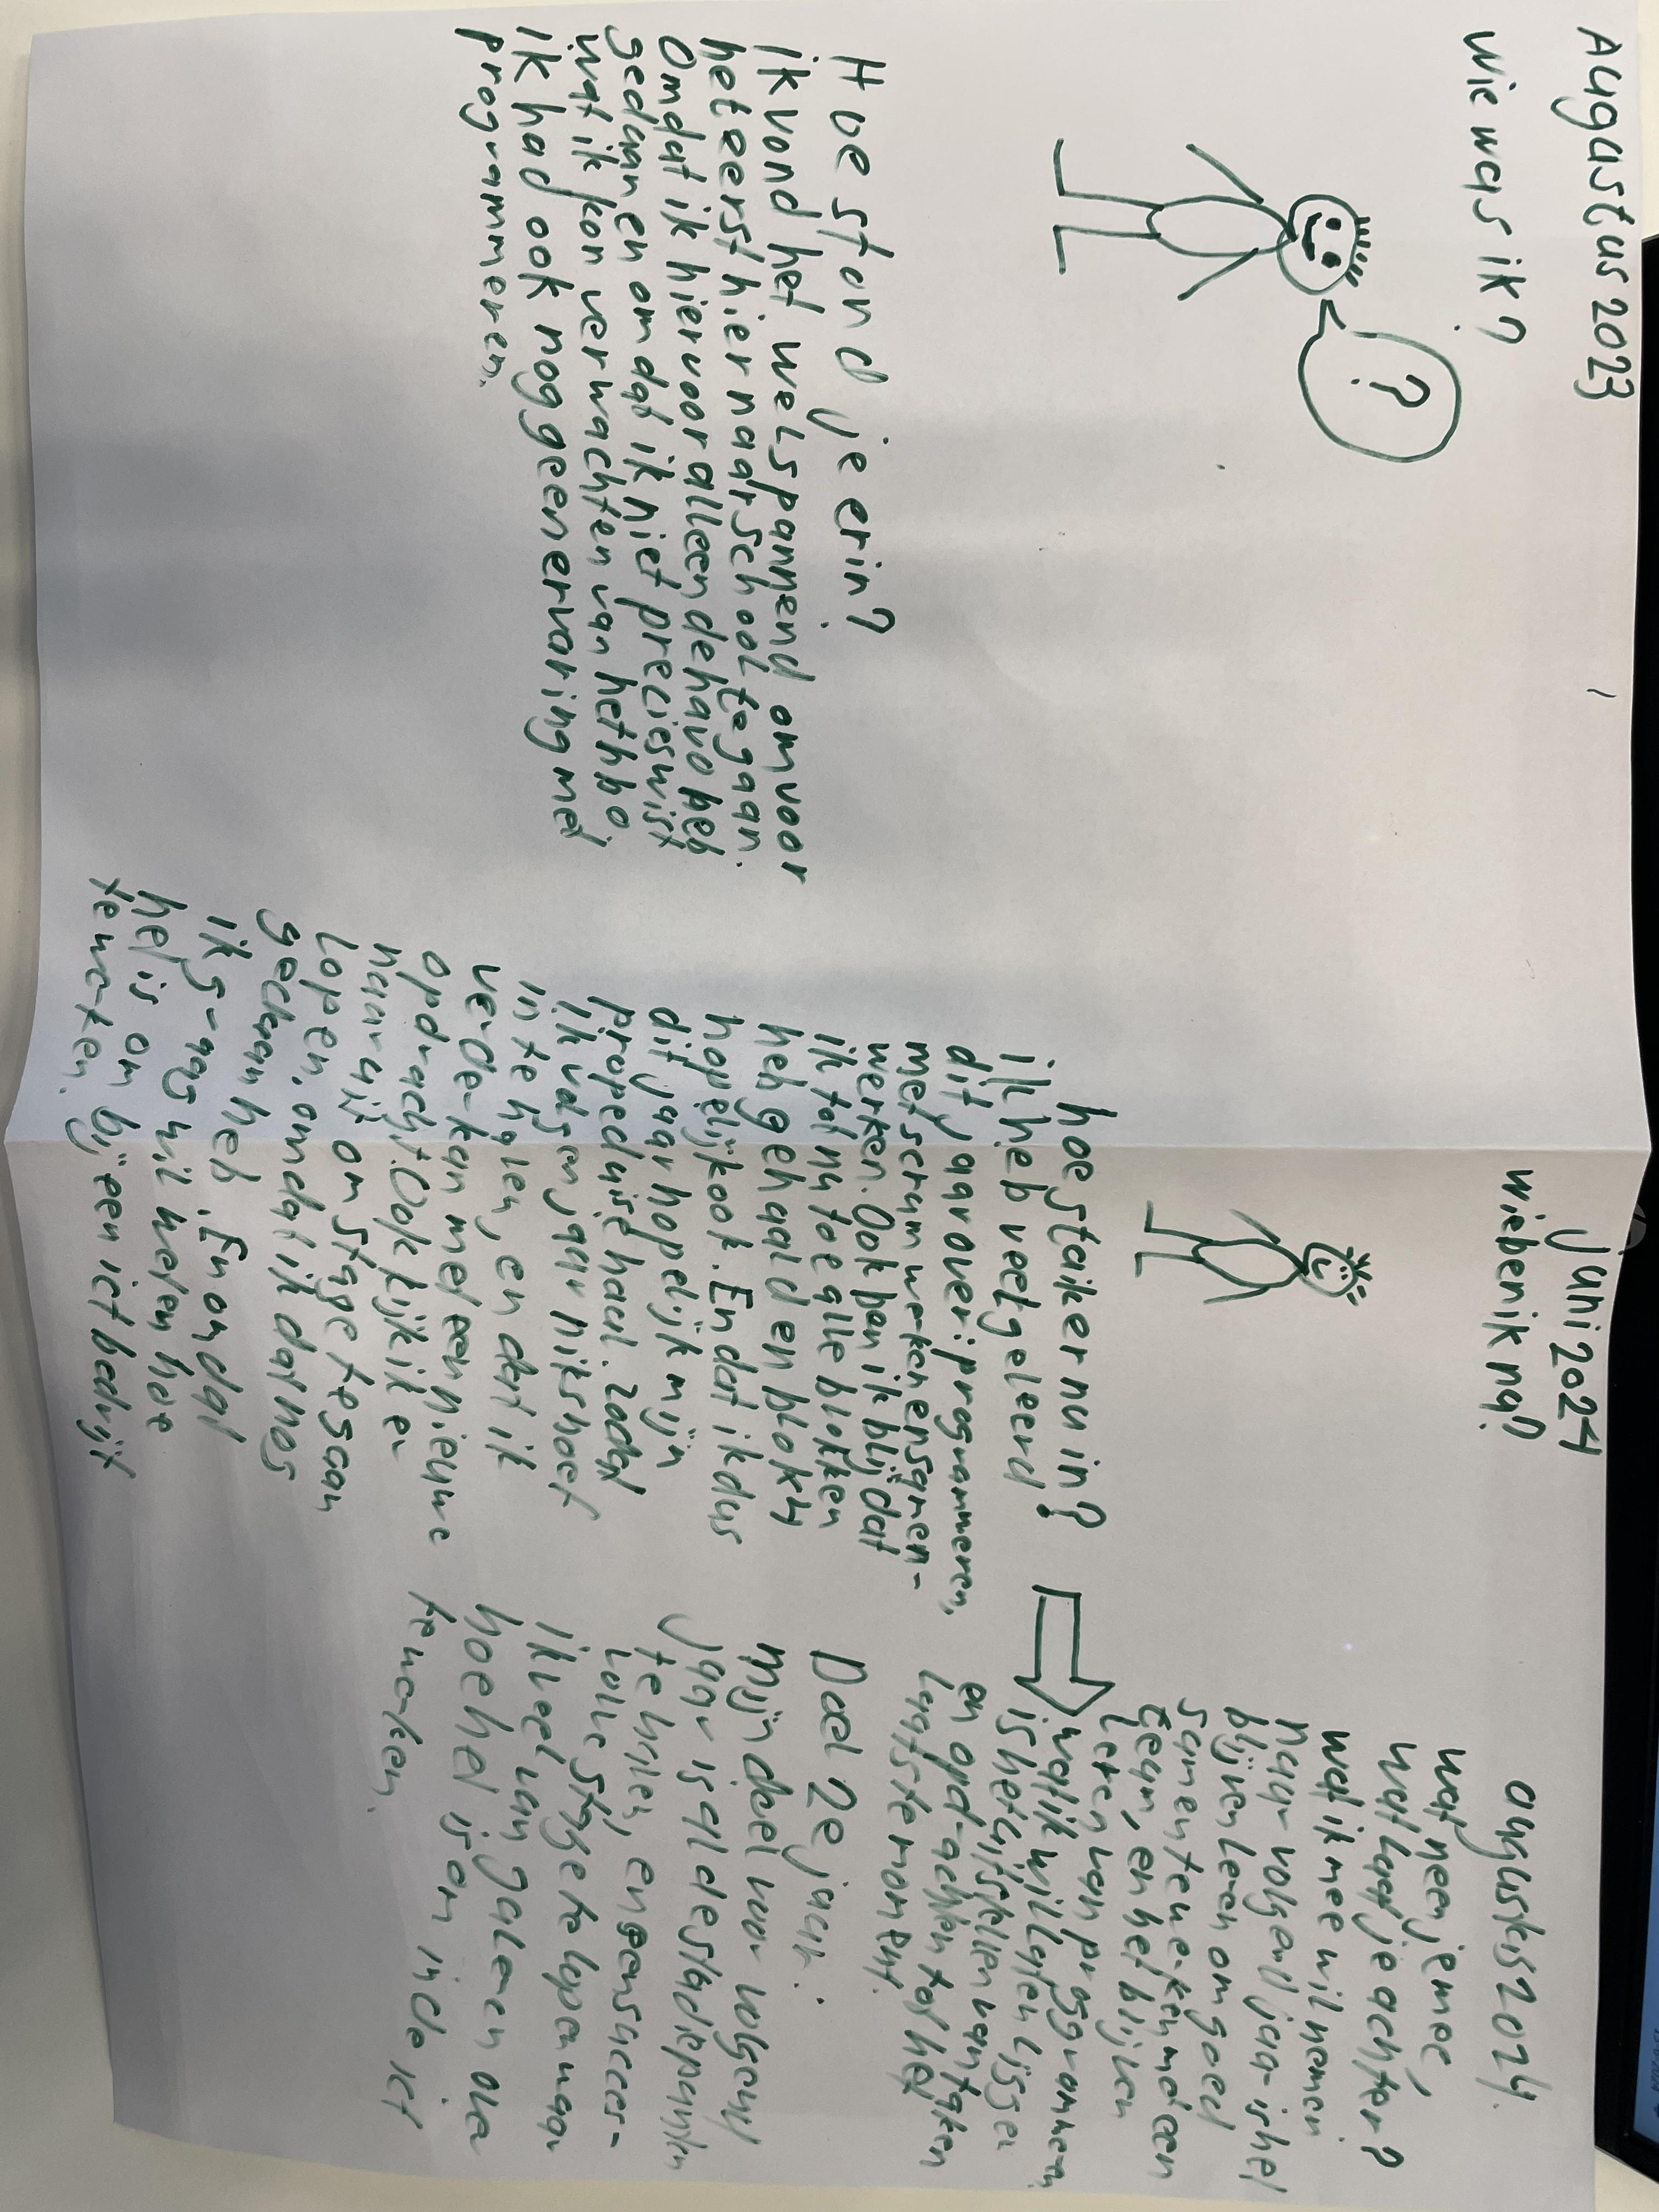 Augustus 2023
wie was ik?
?
Hoe stond je erin?
ik vond het wel spannend om voor
het eerst hier naar school te gaan.
Omdat ik hiervoor alleen de havo heb
gedaan en omdat ik niet precies wist
wat ik kon verwachten van het hbo
ik had ook nog geen ervaring met
programmeren.
juni 2024
wie ben ik nu?
hoe sta ik er nu in?
ik heb veel geleerd
dit jaar over: programmeren,
met scrum werken en samen-
werken. Ook ben ik blij dat
ik tot nu toe alle blokken
heb gehaald en blok 4
hopelijk ook. En dat ik dus
dit jaar hopelijk mijn
propeduise haal. zodat
ik volgen jaar niks hoef
in te halen, en dat ik
verder kan met een nieuwe
opdracht. Ook kijk ik er
naar uit om stage te gaan
lopen, omdat ik dat nog
gedaan heb. En omdat
ik graag wil weten hoe
het is om bij een ict bedrijf
te werken.
augustus 2024.
wat neem je mee,
wat laat je achter?
wat ik mee wil nemen
naar volgend jaar is het
blijven leren om goed
samen te werken met een
team, en het blijven
leren van programmeren
wat ik wil laten liggen
is het uitstellen van taken
en opdrachten tot het
laatste moment.
Doel 2e jaar:
Mijn doel voor volgend
jaar is al de studiepunten
te halen, en een succes-
volle stage te lopen waar
ik veel van ga leren over
hoe het is om in de ict
te werken.